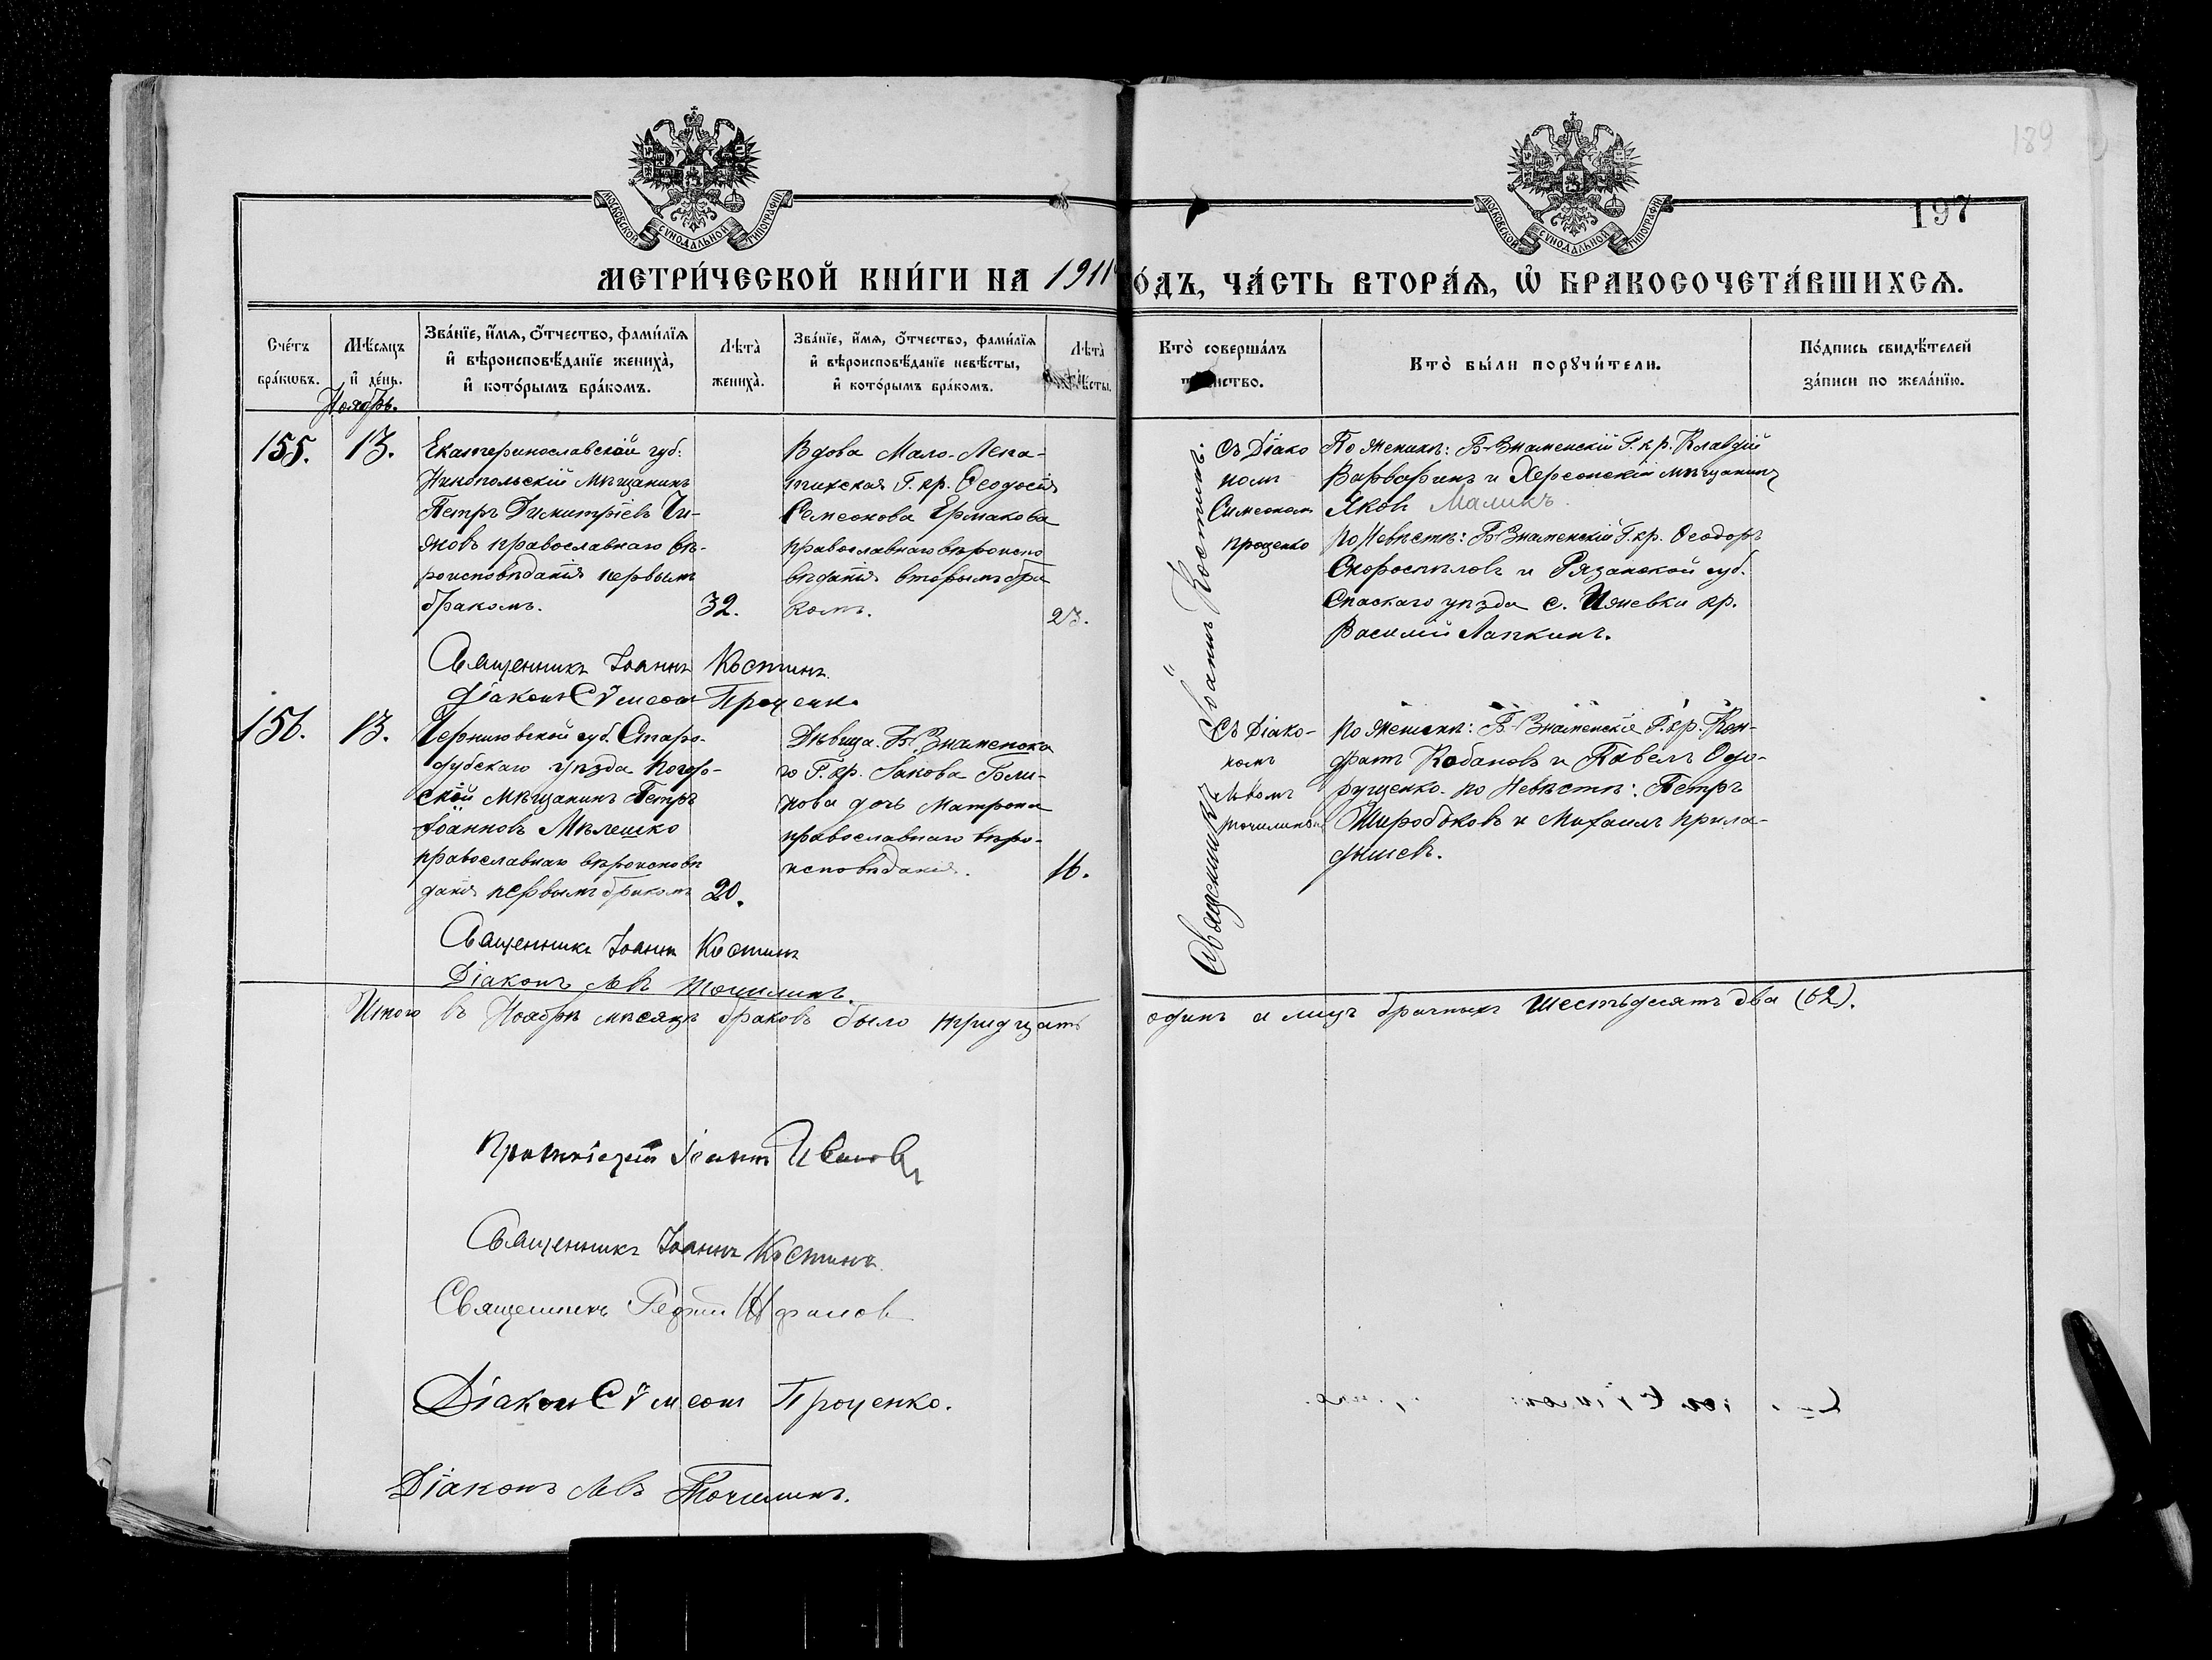 МОСКОВСКОЙ СУНОДАЛЬНОЙ ТИПОГРАФІИ
МОСКОВСКОЙ СУНОДАЛЬНОЙ ТИПОГРАФІИ
189
197
МЕТРИ́ЧЕСКОЙ КНИ́ГИ НА 1911 ...О́ДЪ, ЧА́СТЬ ВТОРА́Ѧ, Ѽ БРАКОСОЧЕТА́ВШИХСѦ.
Сче́тъ бра́кѡвъ.
Мѣ́сяцъ и҆ де́нь.
Зва́нїе, и҆́мѧ, ѻ҆́тчество, фами́лїѧ
и҆ вѣроисповѣ́данїе жениха̀,
и҆ кото́рымъ бра́комъ.
Лѣта̀ жениха̀.
Зва́нїе, и҆́мѧ, ѻ҆́тчество, фами́лїѧ
и҆ вѣроисповѣ́данїе невѣ́сты,
и҆ кото́рымъ бра́комъ.
Лѣта̀ невѣ́сты.
Кто̀ соверша́лъ таинство.
Кто̀ бы́ли порꙋчи́тели.
По́дпись свидѣ́телей
за́писи по жела́нїю.
Ноябрь.
155.
13.
Екатеринославской губ.
Никопольскій мѣщанинъ
Петръ Димитріевъ Чи-
жовъ православнаго вѣ-
роисповѣданія первымъ
бракомъ.
32.
Вдова Мало-Лепа-
тихская Г. кр. Ѳеодосія
Семеонова Ермакова
православнаго вѣроиспо
вѣданія вторымъ бра
комъ.
23.
Съ Діако
номъ
Симеономъ
Проценко
По Женихѣ: Б-Знаменскій Г. кр. Клавдій
Варваринъ и Херсонскій мѣщанинъ
Яковъ Маликъ.
По Невѣстѣ: Б-Знаменскій Г. кр. Ѳеодоръ
Скороспѣловъ и Рязанской губ.
Спаскаго уѣзда с. Ижевки кр.
Василій Лапкинъ.
Священникъ Іоаннъ Костинъ
Діаконъ Сѵмеонъ Проценко
156.
13.
Черниговской губ. Старо-
дубскаго уѣзда Погар-
скій мѣщанинъ Петръ
Іоанновъ Мѣлешко
православнаго вѣроисповѣ
данія первымъ бракомъ
20.
Дѣвица Б-Знаменска
го Г. кр. Іакова Бли-
нова дочь Матрона
православнаго вѣро-
исповѣданія.
16.
Съ Діако-
номъ
Львомъ
Точилинымъ
По Женихѣ: Б-Знаменскіе Г. кр. Кон-
дратъ Кабановъ и Павелъ
По Невѣстѣ: Петръ
Широбоковъ и Михаилъ
Священникъ Іоаннъ Костинъ.
Священникъ Іоаннъ Костинъ
Діаконъ Левъ Точилинъ.
Итого въ Ноябрѣ мѣсяцѣ браковъ было тридцать одинъ а лицъ брачныхъ шестьдесятъ два (62).
Протоіерей Іоаннъ Ивановъ
Священникъ Іоаннъ Костинъ
Священникъ
Діаконъ Сѵмеонъ Проценко.
Діаконъ Левъ Точилинъ.